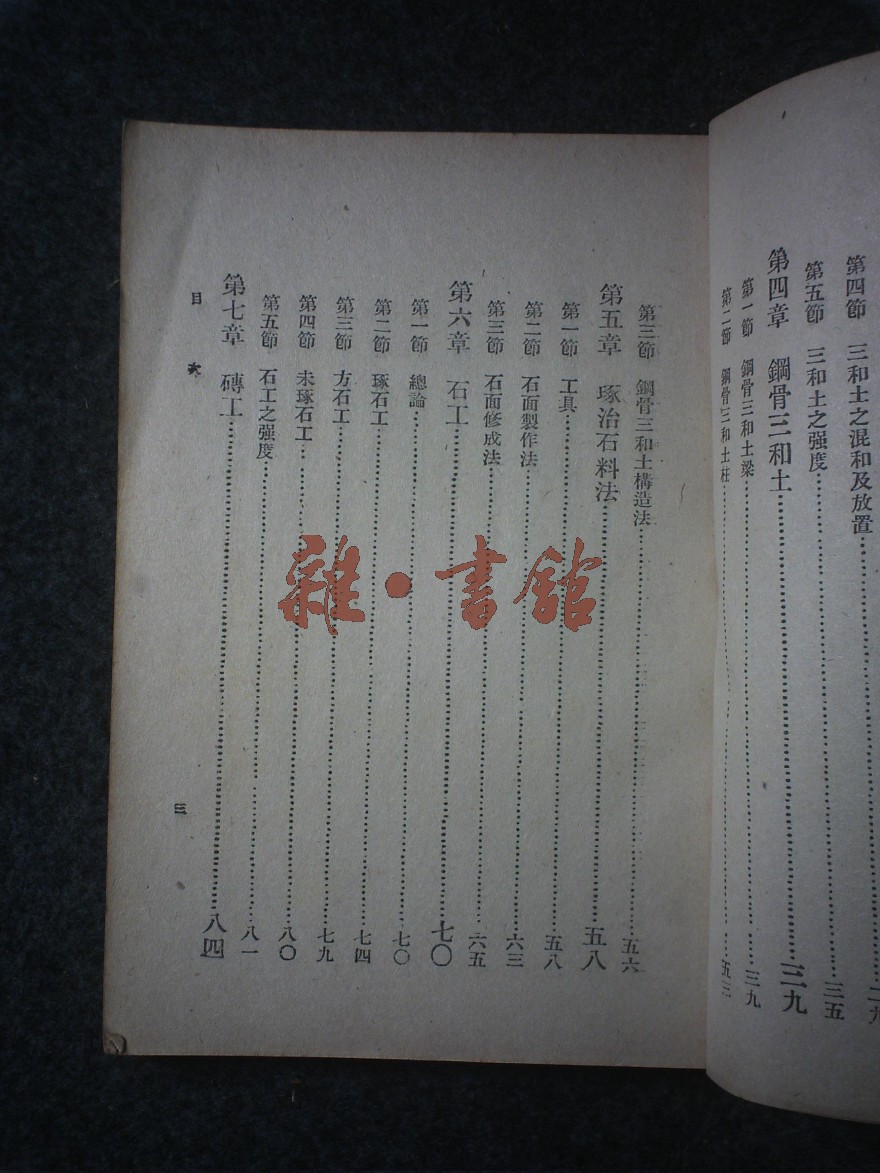 第四節 三和土之混和及放置
第五節 三和土之强度 三五
第四章 鋼骨三和土 三九
第一節 鋼骨三和土梁 三九
第二節 鋼骨三和土柱 五三
第三節 鋼骨三和土構造法 五六
第五章 琢治石料法 五八
第一節 工具 五八
第二節 石面製作法 六三
第三節 石面修成法 六五
第六章 石工 七〇
第一節 總論 七〇
第二節 琢石工 七四
第三節 方石工 七九
第四節 未琢石工 八〇
第五節 石工之强度 八一
第七章 磚工 八四
目次 三
雜·書館